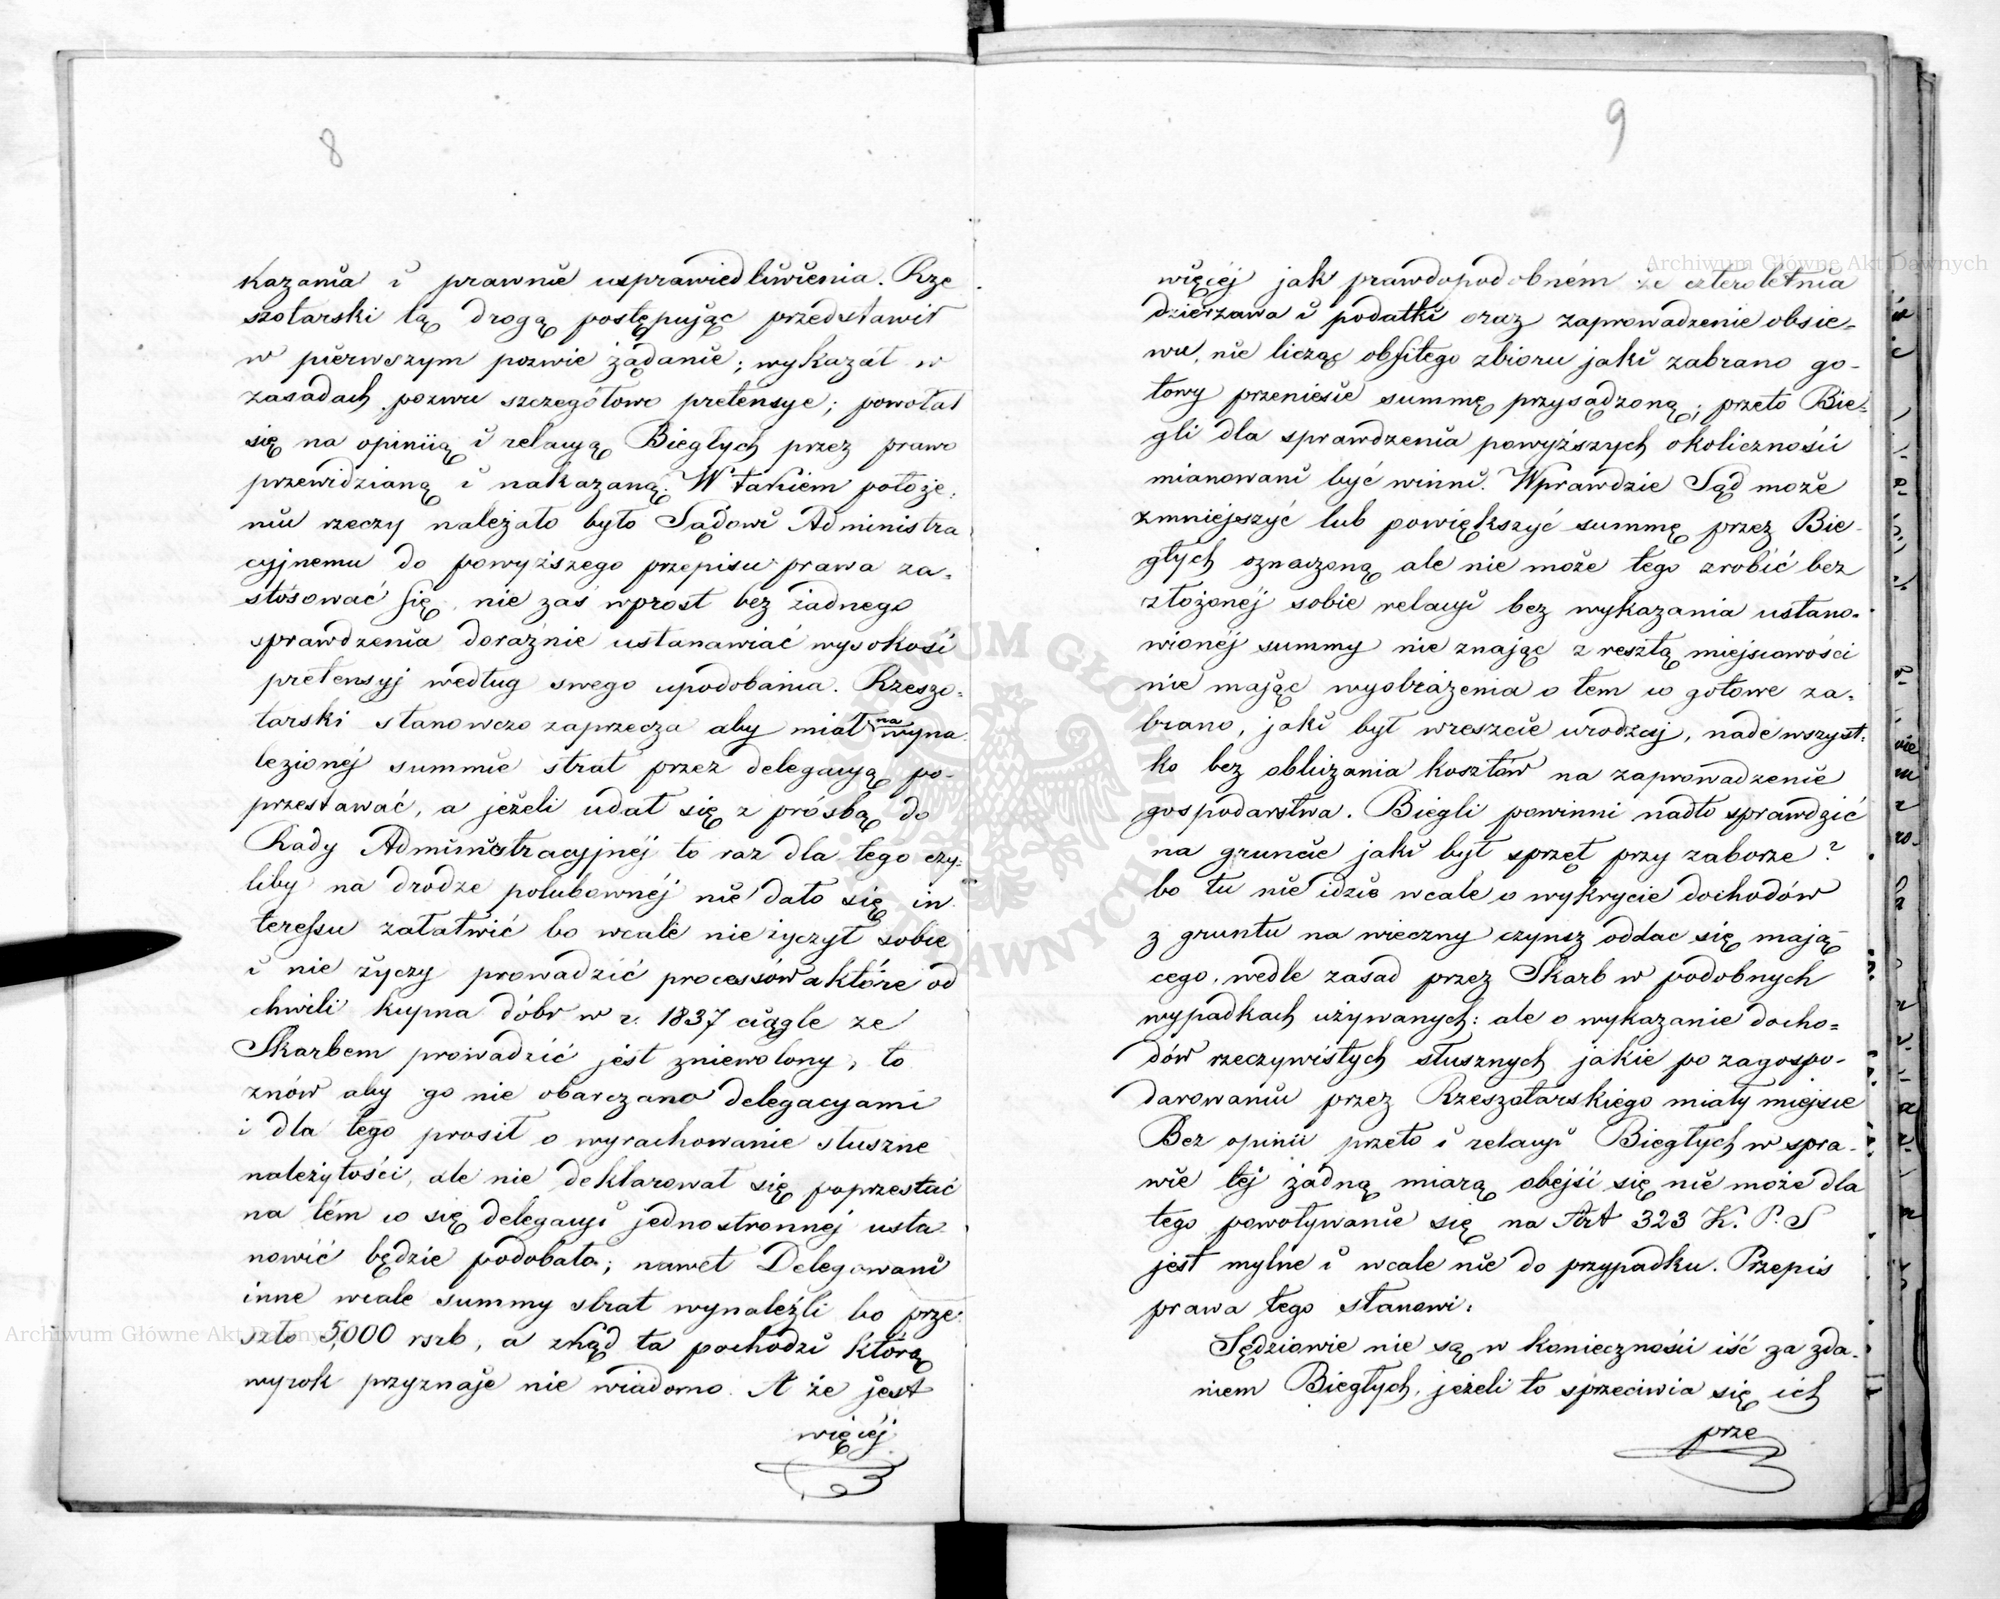 8
kazania i prawnie usprawiedliwienia. Rze
szotarski tą drogą postępując przedstawił
w pierwszym pozwie żądanie; wykazał w
zasadach pozwu szczegółowo pretensye; powołał
się na opiniią i relacyą Biegłych przez prawo
przewidzianą i nakazaną. W takiem położe,
niu rzeczy należało było Sądowi Administra
cyjnemu do powyższego przepisu prawa za,
stósować się, nie zaś wprost bez żadnego
sprawdzenia doraźnie ustanawiać wysokość
pretensyj według swego upodobania. Rzeszo,
tarski stanowczo zaprzecza aby miał na wyna
lezionéj summie strat przez delegacyą po-
przestawać, a jeżeli udał się z prósbą do
Rady Administracyjnéj to raz dla tego czy,
liby na drodze polubownéj nie dało się in
teressu załatwić bo wcale nie życzył sobie
i nie życzy prowadzić processów a które od
chwili kupna dóbr w r. 1837 ciągle ze
Skarbem prowadzić jest zniewolony, to
znów aby go nie obarczano delegacyami
i dla tego prosił o wyrachowanie słuszne
należytości, ale nie deklarował się poprzestać
na tém co się delegacyi jednostronnéj usta
nowić będzie podobało; nawet Delegowani
inne wcale summy strat wynaleźli bo prze,
szło 5,000 rsrb, a zkąd ta pochodzi którą
wyrok przyznaje nie wiadomo. A że jest
więcéj
9
więcéj jak prawdopodobném że czteroletnia
dzierzawa i podatki oraz zaprowadzenie obsie-
wu, nie licząc obfitego zbioru jaki zabrano go-
towy przeniesie summę przysądzoną; przeto Bie-
gli dla sprawdzenia powyższych okoliczności
mianowani być winni. Wprawdzie Sąd może
zmniejszyć lub powiększyć summę przez Bie-
głych oznaczoną ale nie może tego zrobić bez
złożonéj sobie relacyi bez wykazania ustano-
wionéj summy nie znając z resztą miejscowości
nie mając wyobrażenia o tem co gotowe za,
brano, jaki był wreszcie urodzaj, nadewszyst,
ko bez obliczania kosztów na zaprowadzenie
gospodarstwa. Biegli powinni nadto sprawdzić
na gruncie jaki był sprzęt przy zaborze?
bo tu nie idzie wcale o wykrycie dochodów
z gruntu na wieczny czynsz oddac się mają-
cego, wedle zasad przez Skarb w podobnych
wypadkach używanych: ale o wykazanie docho-
dów rzeczywistych słusznych jakie po zagospo-
darowaniu przez Rzeszotarskiego miały miejsce
Bez opinii przeto i relacyi Biegłych w spra-
wie téj żadną miarą obejść się nie może dla
tego powoływanie się na Art 323 K. P. S
jest mylne i wcale nie do przypadku. Przepis
prawa tego stanowi:
Sędziowie nie są w konieczności iść za zda,
niem Biegłych, jeżeli to sprzeciwia się ich
prze
Archiwum Główne Akt Dawnych
Archiwum Główne Akt Dawnych
ARCHIWUM GŁÓWNE AKT DAWNYCH